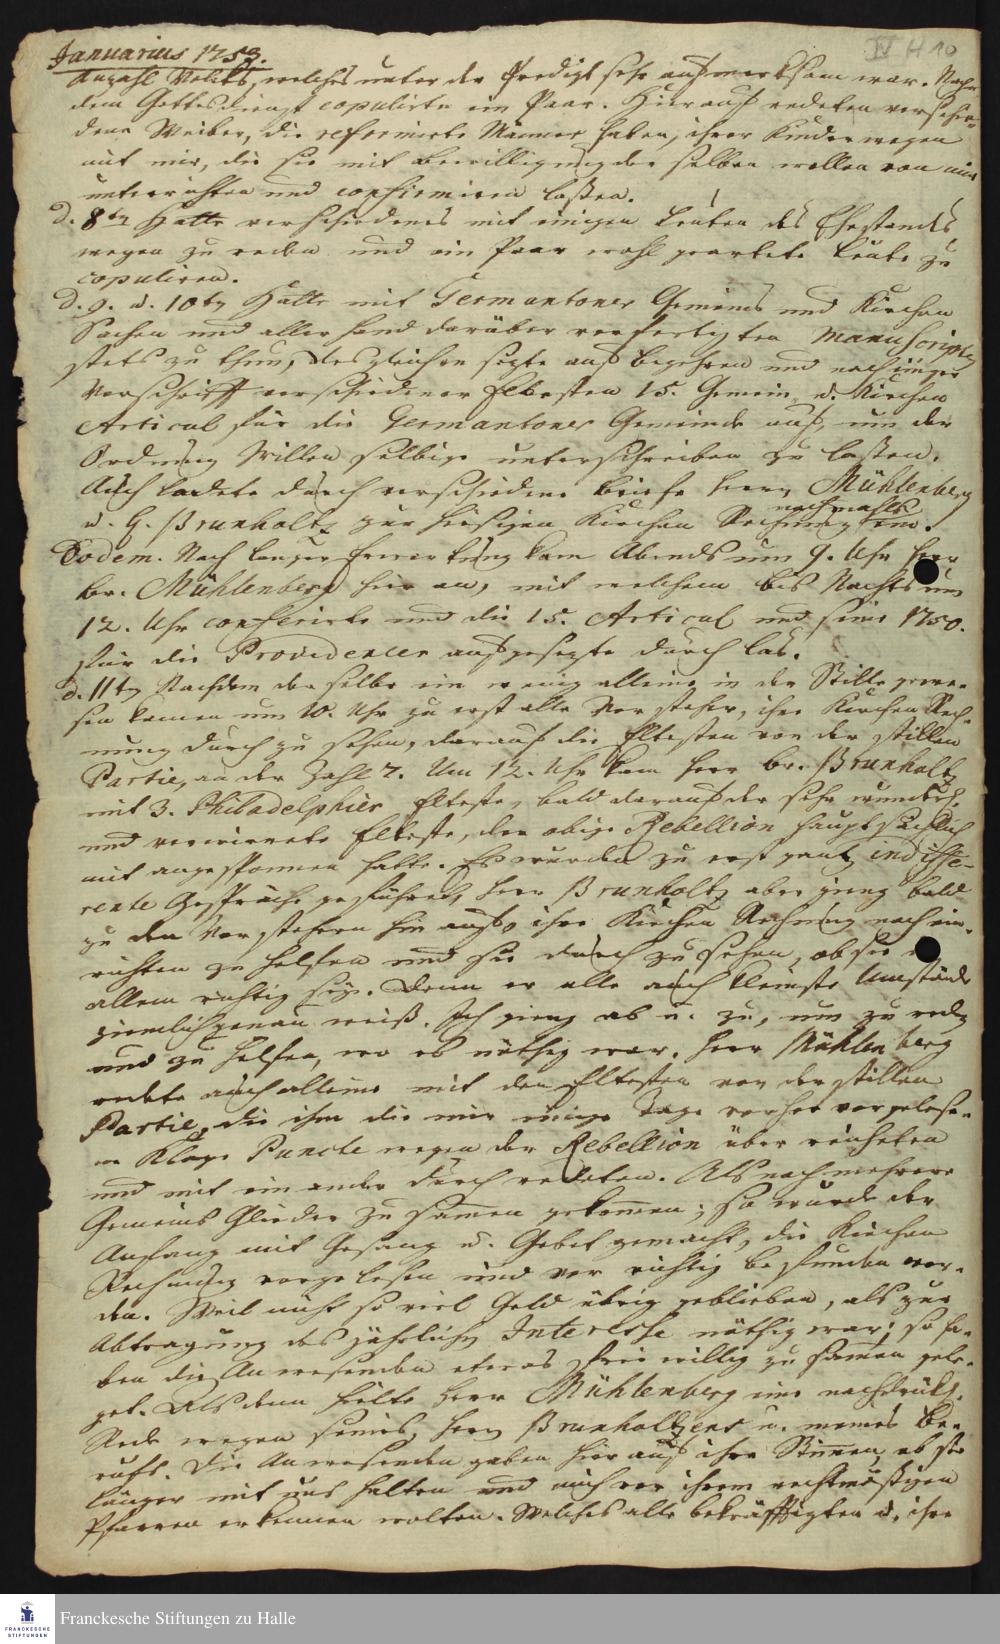 Januarius 1753.
IV H 10
Anzahl Volcks, welches unter der Predigt sehr aufmercksam war. Nach
dem Gottesdienst copulirte ein Paar. Hierauf redeten verschie-
dene Weiber, die reformirte Männer haben, ihrer Kinder wegen
mit mir, die sie mit Bewilligung der selben wollen von mir
unterrichten und confirmiren laßen.
d. 8ten Hatte verschiedenes mit einigen Leuten des Ehestandes
wegen zu reden und ein Paar wohl geartete Leute zu
copuliren.
d. 9. u. 10ten Hatte mit Germantoner Gemeins und Kirchen
Sachen und aller hand darüber verfertigten Manuscripten
stets zu thun, desgleichen sezte auf Begehren und nach
Vorschrifft verschiedener Eltesten 15. Gemein u. Kirchen
Articul für die Germantoner Gemeinde auf, um der
Ordnung Willen selbige unterschreiben zu laßen.
Auch ladete durch verschiedene Briefe Herrn Mühlenberg
u. H. Brunholtz zur hiesigen Kirchen Rechnung nachmahls ein.
Eodem. Nach langer Erwartung kam Abends um 9. Uhr Herr
Br. Mühlenberg hier an, mit welchem bis Nachts um
12. Uhr conferirte und die 15. Articul und seine 1750.
für die Providencer aufgesezte durch las.
d. 11ten Nachdem derselbe ein wenig alleine in der Stille gewe-
sen kamen um 10. Uhr zu erst alle Vorsteher, ihre Kirchen Rech-
nung durch zu sehen, darauf die Eltesten von der stillen
Partie, an der Zahl 7. Um 12. Uhr kam Herr Br. Brunholtz
mit 3. Philadelphier Elteste, bald darauf der sehr
und Elteste, der obige Rebellion hauptsächlich
mit angesponnen hatte. Es wurden zu erst gantz indiffe-
rente Gespräche geführet, Herr Brunholtz aber gieng bald
zu den Vorstehern hin auf, ihre Kirchen Rechnung noch ein-
richten zu helfen und sie durch zu sehen, ob sie
allem richtig sey. Denn er alle auch kleinste Umstände
ziemlich genau weiß. Ich gieng ab u. zu, um zu reden
und zu helfen, wo es nöthig war. Herr Mühlenberg
redete auch alleine mit den Eltesten von der stillen
Partie, die ihm die mir einige Tage vorher vorgelese-
ne Klage Puncte wegen der Rebellion über reicheten
und mit ein ander durch redeten. Als noch mehrere
Gemeins Glieder zusamen gekomen; so wurde der
Anfang mit Gesang u. Gebet gemacht, die Kirchen
Rechnung vorgelesen und vor richtig befunden wor-
den. Weil nicht so viel Geld übrig geblieben, als zur
Abtragung des jährlichen Interesse nöthig war; so ha-
ben die Anwesenden etwas freiwillig zusamen gele-
get. Als denn hielte Herr Mühlenberg eine nachdrückl.
Rede wegen seines, Herrn Brunholtzens u. meines Be-
rufs. Die Anwesenden gaben hierauf ihre Stimen, ob sie
länger mit uns halten und mich vor ihrem rechtmäßigen
Pfarren erkennen wolten. Welches alle bekräfftigten u. ihre
FRANCKESCHE
STIFTUNGEN
Franckesche Stiftungen zu Halle